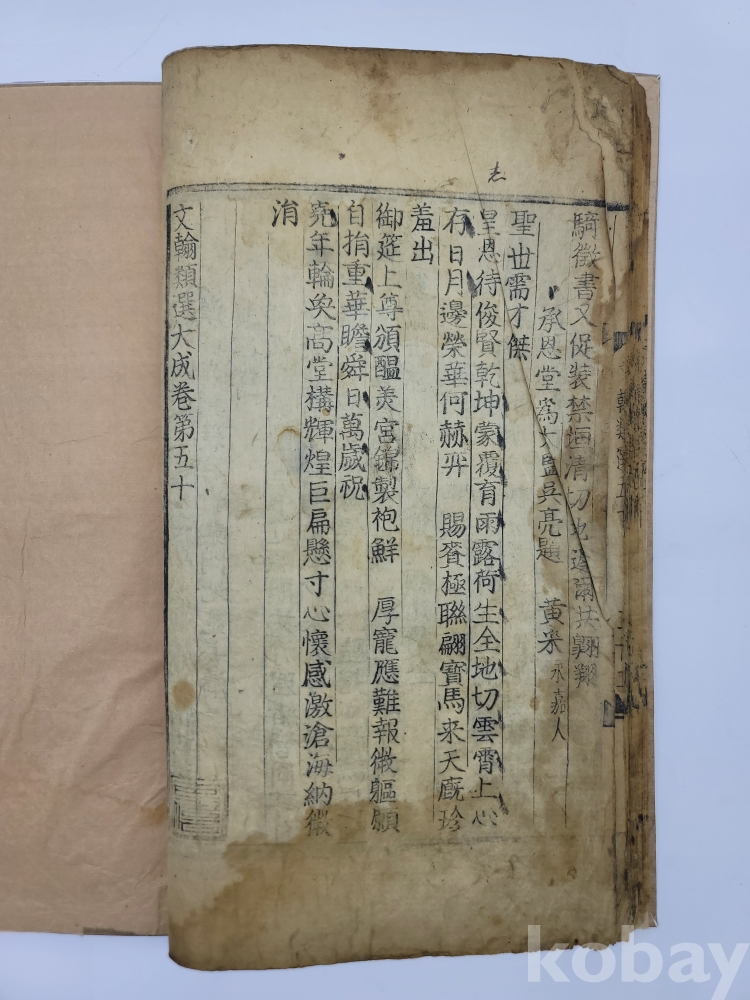 志
騎徵書又促裝禁垣清切地
共翺翔
承恩堂爲太監吳亮題 黃 永嘉人
聖世需才傑
皇恩待俊賢乾坤蒙覆育雨露荷生全地切雲霄上心
存日月邊榮華何赫弈 賜賚極聯翩寶馬來天廐珍
羞出
御筵上尊頒醞美宮錦製袍鮮 厚寵應難報微軀願
自捐重華瞻舜日萬歲祝
堯年輪奐高堂構輝煌巨扁懸寸心懷感激滄海納微
涓
文翰類選大成卷第五十
kobay